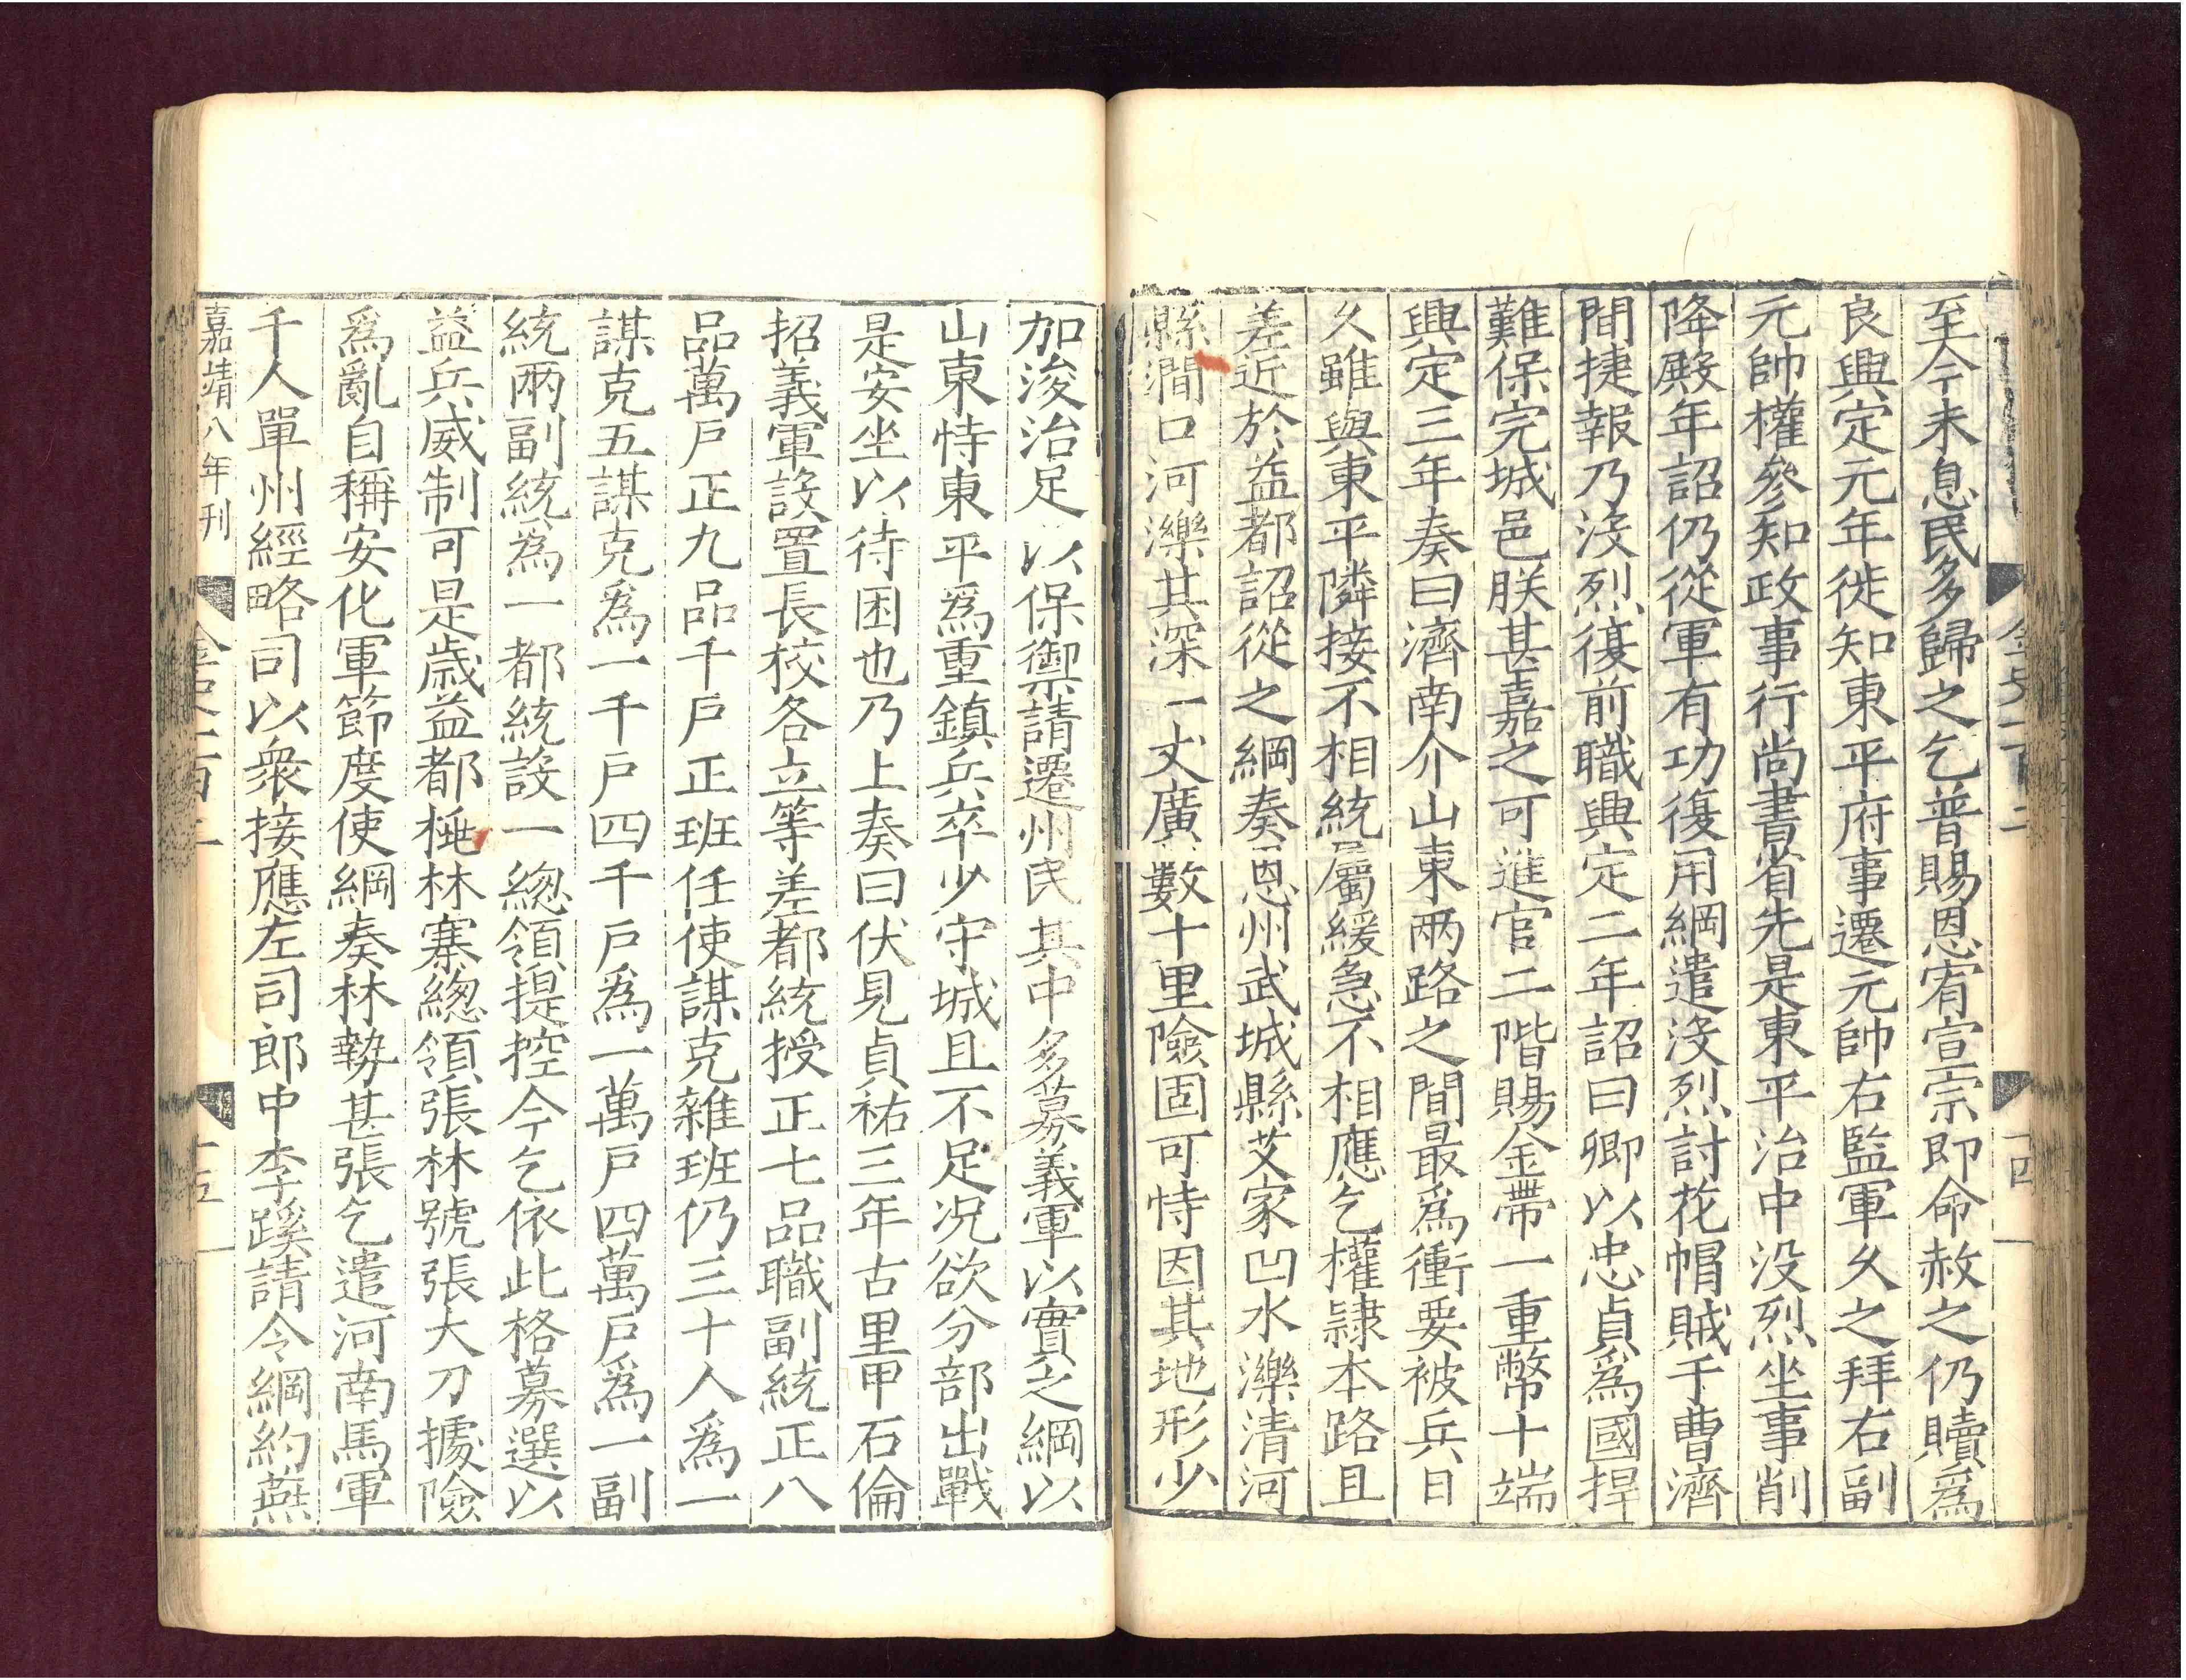 至今未息民多歸之乞普賜恩宥宣宗即命赦之仍贖爲
良興定元年徙知東平府事遷元帥右監軍久之拜右副
元帥權參知政事行尚書省先是東平治中没烈坐事削
降殿年詔仍從軍有功復用綱遣没烈討花帽賊于曹濟
間捷報乃没烈復前職興定二年詔曰卿以忠貞爲國捍
難保完城邑朕甚嘉之可進官二階賜金帶一重幣十端
興定三年奏曰濟南介山東兩路之間最爲衝要被兵日
久雖與東平隣接不相統屬緩急不相應乞權隷本路且
差近於益都詔從之綱奏恩州武城縣艾家凹水濼清河
縣澗口河濼其深一丈廣數十里險固可恃因其地形少
加浚治足以保禦請遷州民其中多募義軍以實之綱以
山東恃東平爲重鎮兵卒少守城且不足况欲分部出戰
是安坐以待困也乃上奏曰伏見貞祐三年古里甲石倫
招義軍設置長校各立等差都統授正七品職副統正八
品萬戶正九品千戶正班任使謀克雜班仍三十人爲一
謀克五謀克爲一千戶四千戶爲一萬戶四萬戶爲一副
統兩副統爲一都統設一緫領提控今乞依此格募選以
益兵威制可是歲益都桷林寨緫領張林號張大刀據險
爲亂自稱安化軍節度使綱奏林勢甚張乞遣河南馬軍
千人單州經略司以衆接應左司郎中李蹊請令綱約燕
嘉靖八年刊
金史一百二
十五